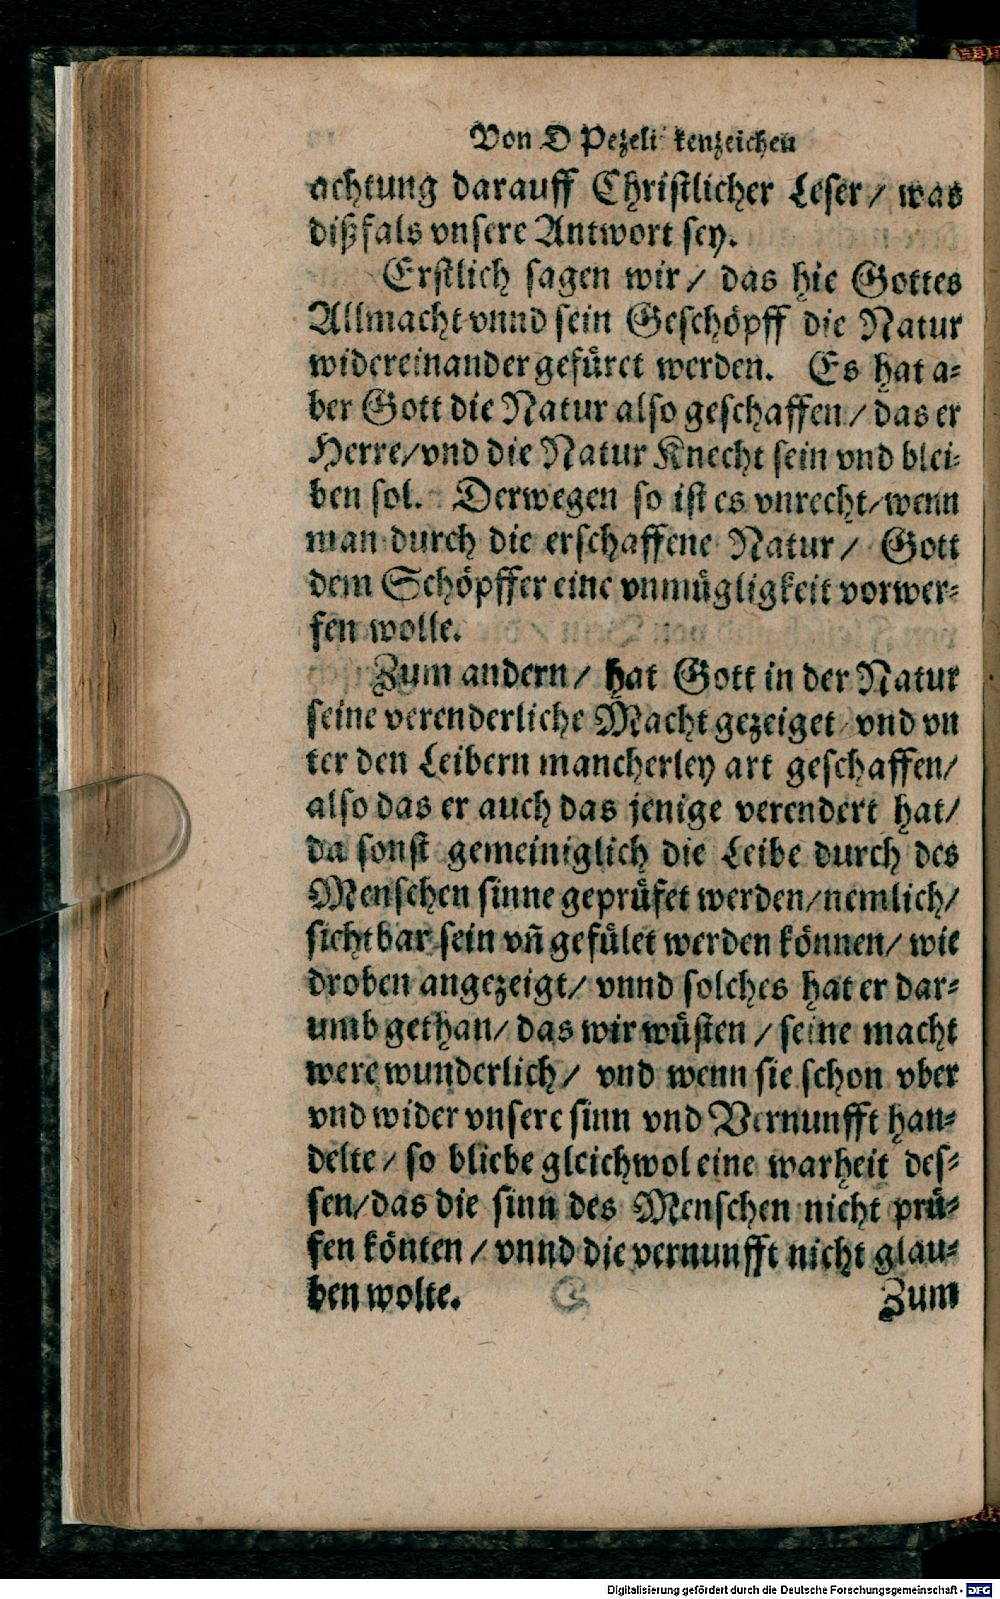 Von D Pezeli kenzeichen
achtung darauff Christlicher Leser / was
dißfals vnsere Antwort sey.
Erstlich sagen wir / das hie Gottes
Allmacht vnnd sein Geschöpff die Natur
widereinander gefüret werden. Es hat a-
ber Gott die Natur also geschaffen / das er
Herre/vnd die Natur Knecht sein vnd blei-
ben sol. Derwegen so ist es vnrecht/wenn
man durch die erschaffene Natur / Gott
dem Schöpffer eine vnmügligkeit vorwer-
fen wolle.
Zum andern / hat Gott in der Natur
seine verenderliche Macht gezeiget vnd vn
ter den Leibern mancherley art geschaffen/
also das er auch das jenige verendert hat/
da sonst gemeiniglich die Leibe durch des
Menschen sinne geprüfet werden/nemlich/
sichtbar sein vñ gefület werden können/ wie
droben angezeigt/ vnnd solches hat er dar-
umb gethan/ das wir wüsten / seine macht
were wunderlich/ vnd wenn sie schon vber
vnd wider vnsere sinn vnd Vernunfft han-
delte / so bliebe gleichwol eine warheit des-
sen/das die sinn des Menschen nicht prü-
fen könten / vnnd die vernunfft nicht glau-
ben wolte. Zum
Digitalisierung gefördert durch die Deutsche Forschungsgemeinschaft - DFG